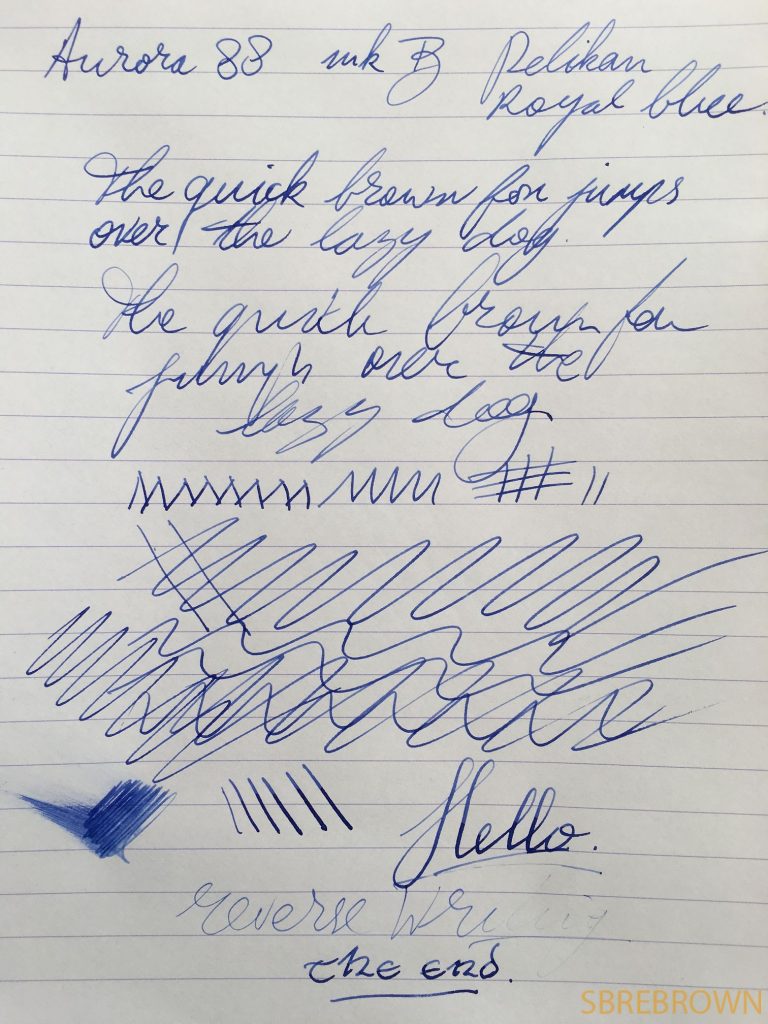 Aurora 88 mk B Pelikan
Royal blue.
The quick brown fox jumps
over the lazy dog.
The quick brown fox
jumps over the
lazy dog
Hello.
reverse writing
the end.
SBREBROWN